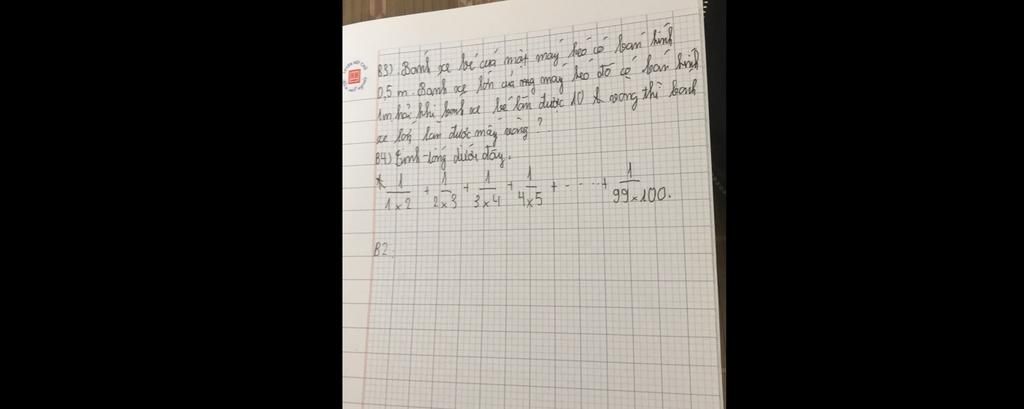 B3) Bánh xe bé của một máy kéo có bán kính
0,5 m. Bánh xe lớn của máy kéo đó có bán kính
1m hỏi khi bánh xe bé lăn được 10 vòng thì bánh
xe lớn lăn được mấy vòng?
B4) Tính tổng dưới đây.
* 1/1×2 + 1/2×3 + 1/3×4 + 1/4×5 + - - - ... + 1/99×100.
B2: